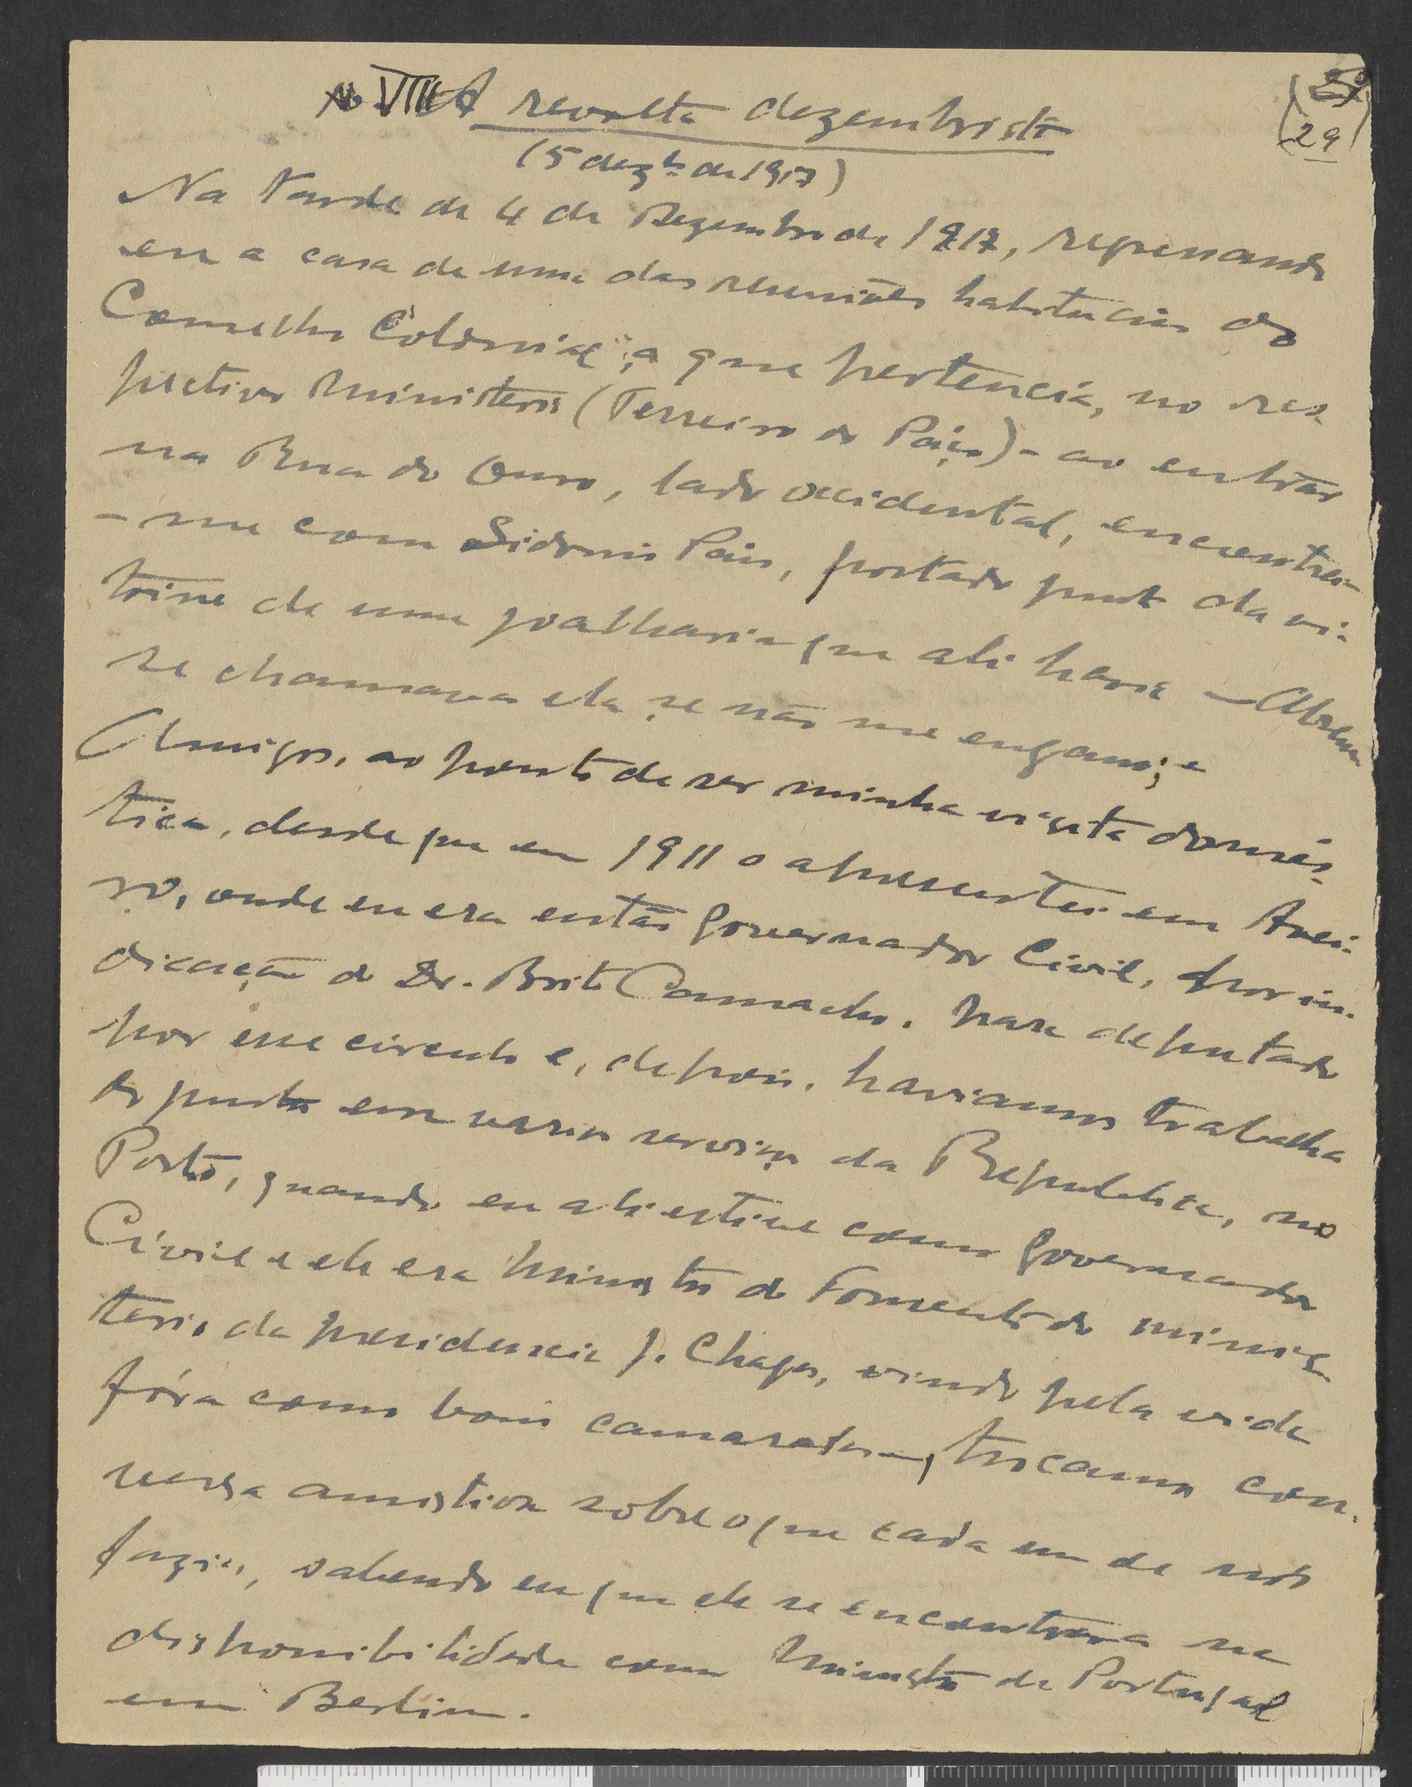 VIII A revolta dezembrista
(29)
(5 dezbº de 1917)
Na tarde de 4 de Dezembro de 1917, regressando
eu a casa de uma das reuniões habituais do
Conselho Colonial, a que pertencia, no res-
pectivo Ministerio (Terreiro do Paço) - ao entrar
na Rua do Ouro, lado occidental, encontrei-
-me com Sidonio Pais, postado junto da vi-
trine de uma joalharia que ali havia — Abreu
se chamava ela, se não me engano;
Amigos, ao ponto de ser minha visita domés-
tica, desde que em 1911 o apresentei em Avei-
ro, onde eu era então Governador Civil, por in-
dicação do Dr. Brito Camacho, para deputado
por esse circulo e, depois, haviamos trabalha
do juntos em varios serviços da Republica, no
Porto, quando eu ali estive como Governador
Civil e ele era Ministro do Fomento do minis-
terio da presidencia J. Chagas, vindo pela vida
fóra como bons camaradas —, trocamos con-
versa amistosa sobre o que cada um de nós
fazia, sabendo eu que ele se encontrava na
disponibilidade como Ministro de Portugal
em Berlim.